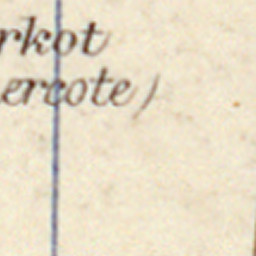 rkot
ercote)